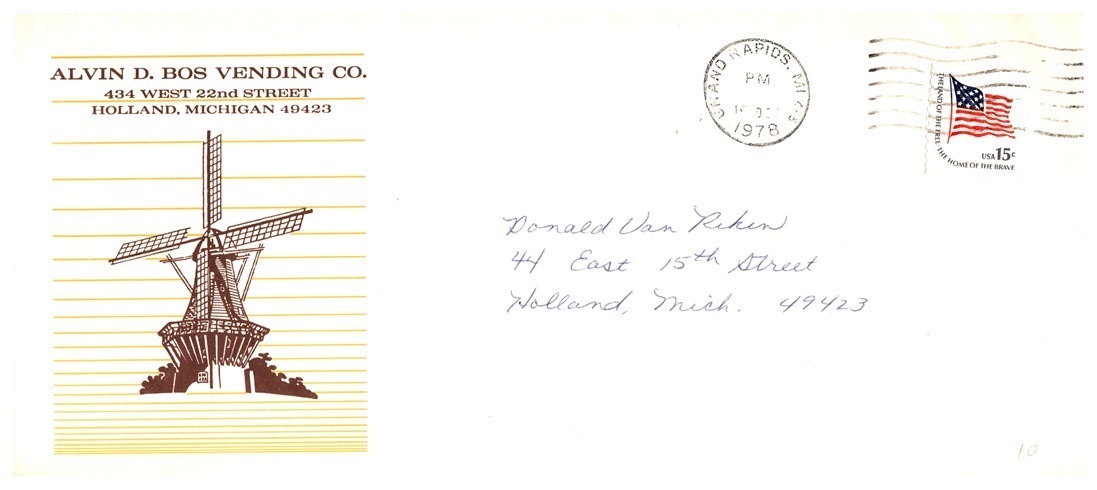 ALVIN D. BOS VENDING CO.
434 WEST 22nd STREET
HOLLAND, MICHIGAN 49423
GRAND RAPIDS, MI
PM
1978
THE LAND OF THE FREE · THE HOME OF THE BRAVE
USA 15c
Donald Van Reken
44 East 15th Street
Holland, Mich. 49423
10